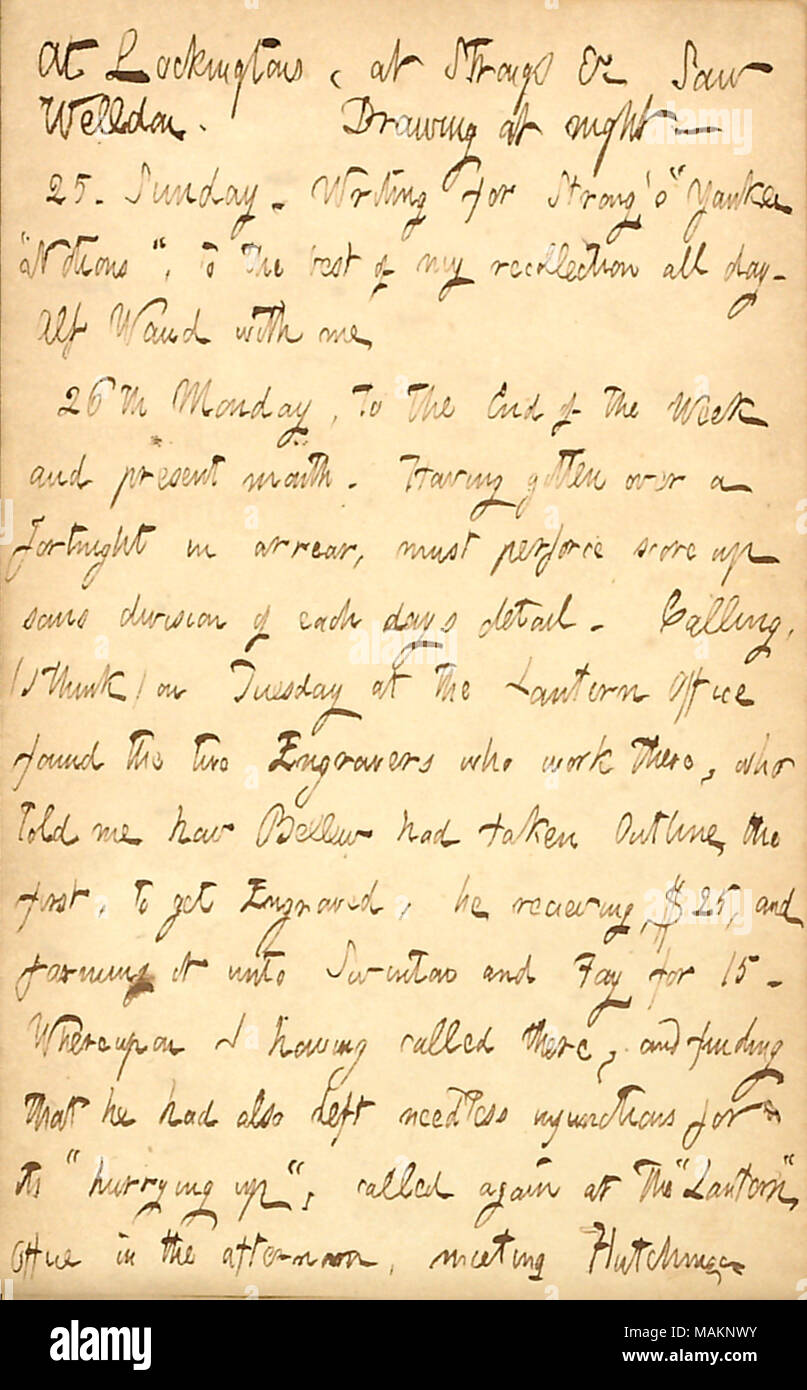 At Lockingtons, at Strongs &c Saw
Welldon. Drawing at night —
25. Sunday. Writing for Strong's "Yankee
"Notions", to the best of my recollection all day.
Alf Waud with me
26th Monday, to the End of the Week
and present month. Having gotten over a
fortnight in arrear, must perforce score up
sans division of each days detail. Calling,
(I think) on Tuesday at the Lantern Office
found the two Engravers who work there, who
told me how Bellew had taken Outline, the
first, to get Engraved, he recieving $25, and
farming it unto Swinton and Fay for 15.
Whereupon I having called there, and finding
that he had also left needless injunctions for
its "hurrying up", called again at the "Lantern"
Office in the afternoon, meeting Hutchings
alamy
Image ID: MAKNWY
www.alamy.com